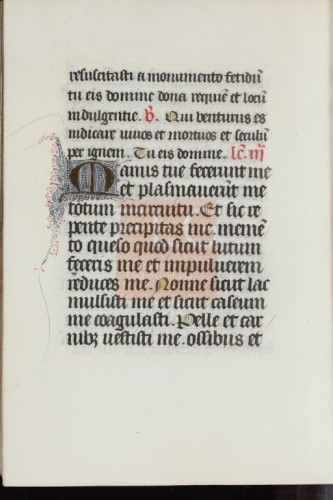 resuscitasti a monumento fetidū
tu eis domine dona requiē et locū
indulgentie. V̄. Qui venturus es
iudicare vivos et mortuos et seculū
per ignem. Tu eis domine. lc̄. iij
Manus tue fecerunt me
et plasmaverūt me
totum in circuitu. Et sic re
pente precipitas me. memē
to queso quod sicut lutum
feceris me et in pulverem
reduces me. Nonne sicut lac
mulsisti me et sicut caseum
me coagulasti. Pelle et car
nibꝫ vestisti me. ossibus et